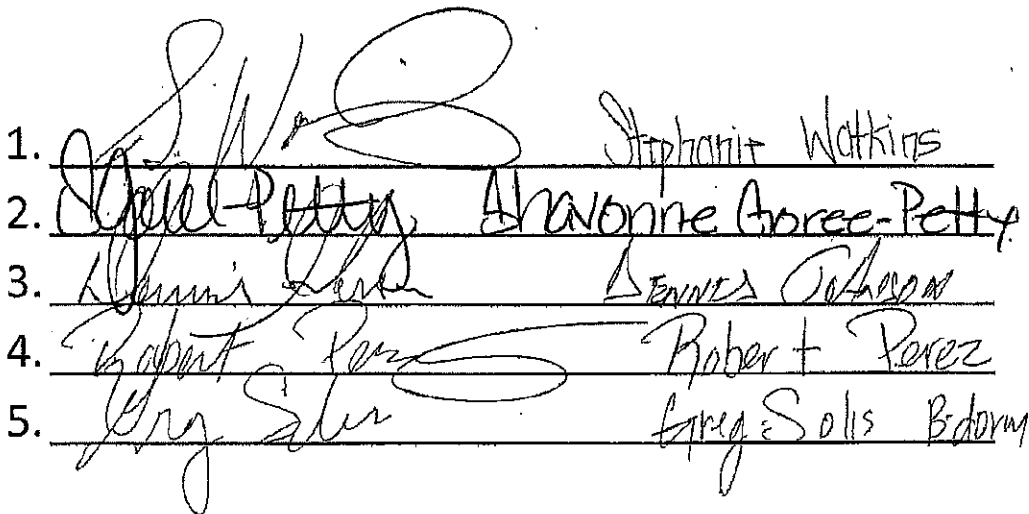 1. S. Wa Stephanie Watkins
2. SGoree-Petty Shavonne Goree-Petty
3. Dennis Johnson Dennis Johnson
4. Robert Perez Robert Perez
5. Greg Solis Greg Solis B-dorm